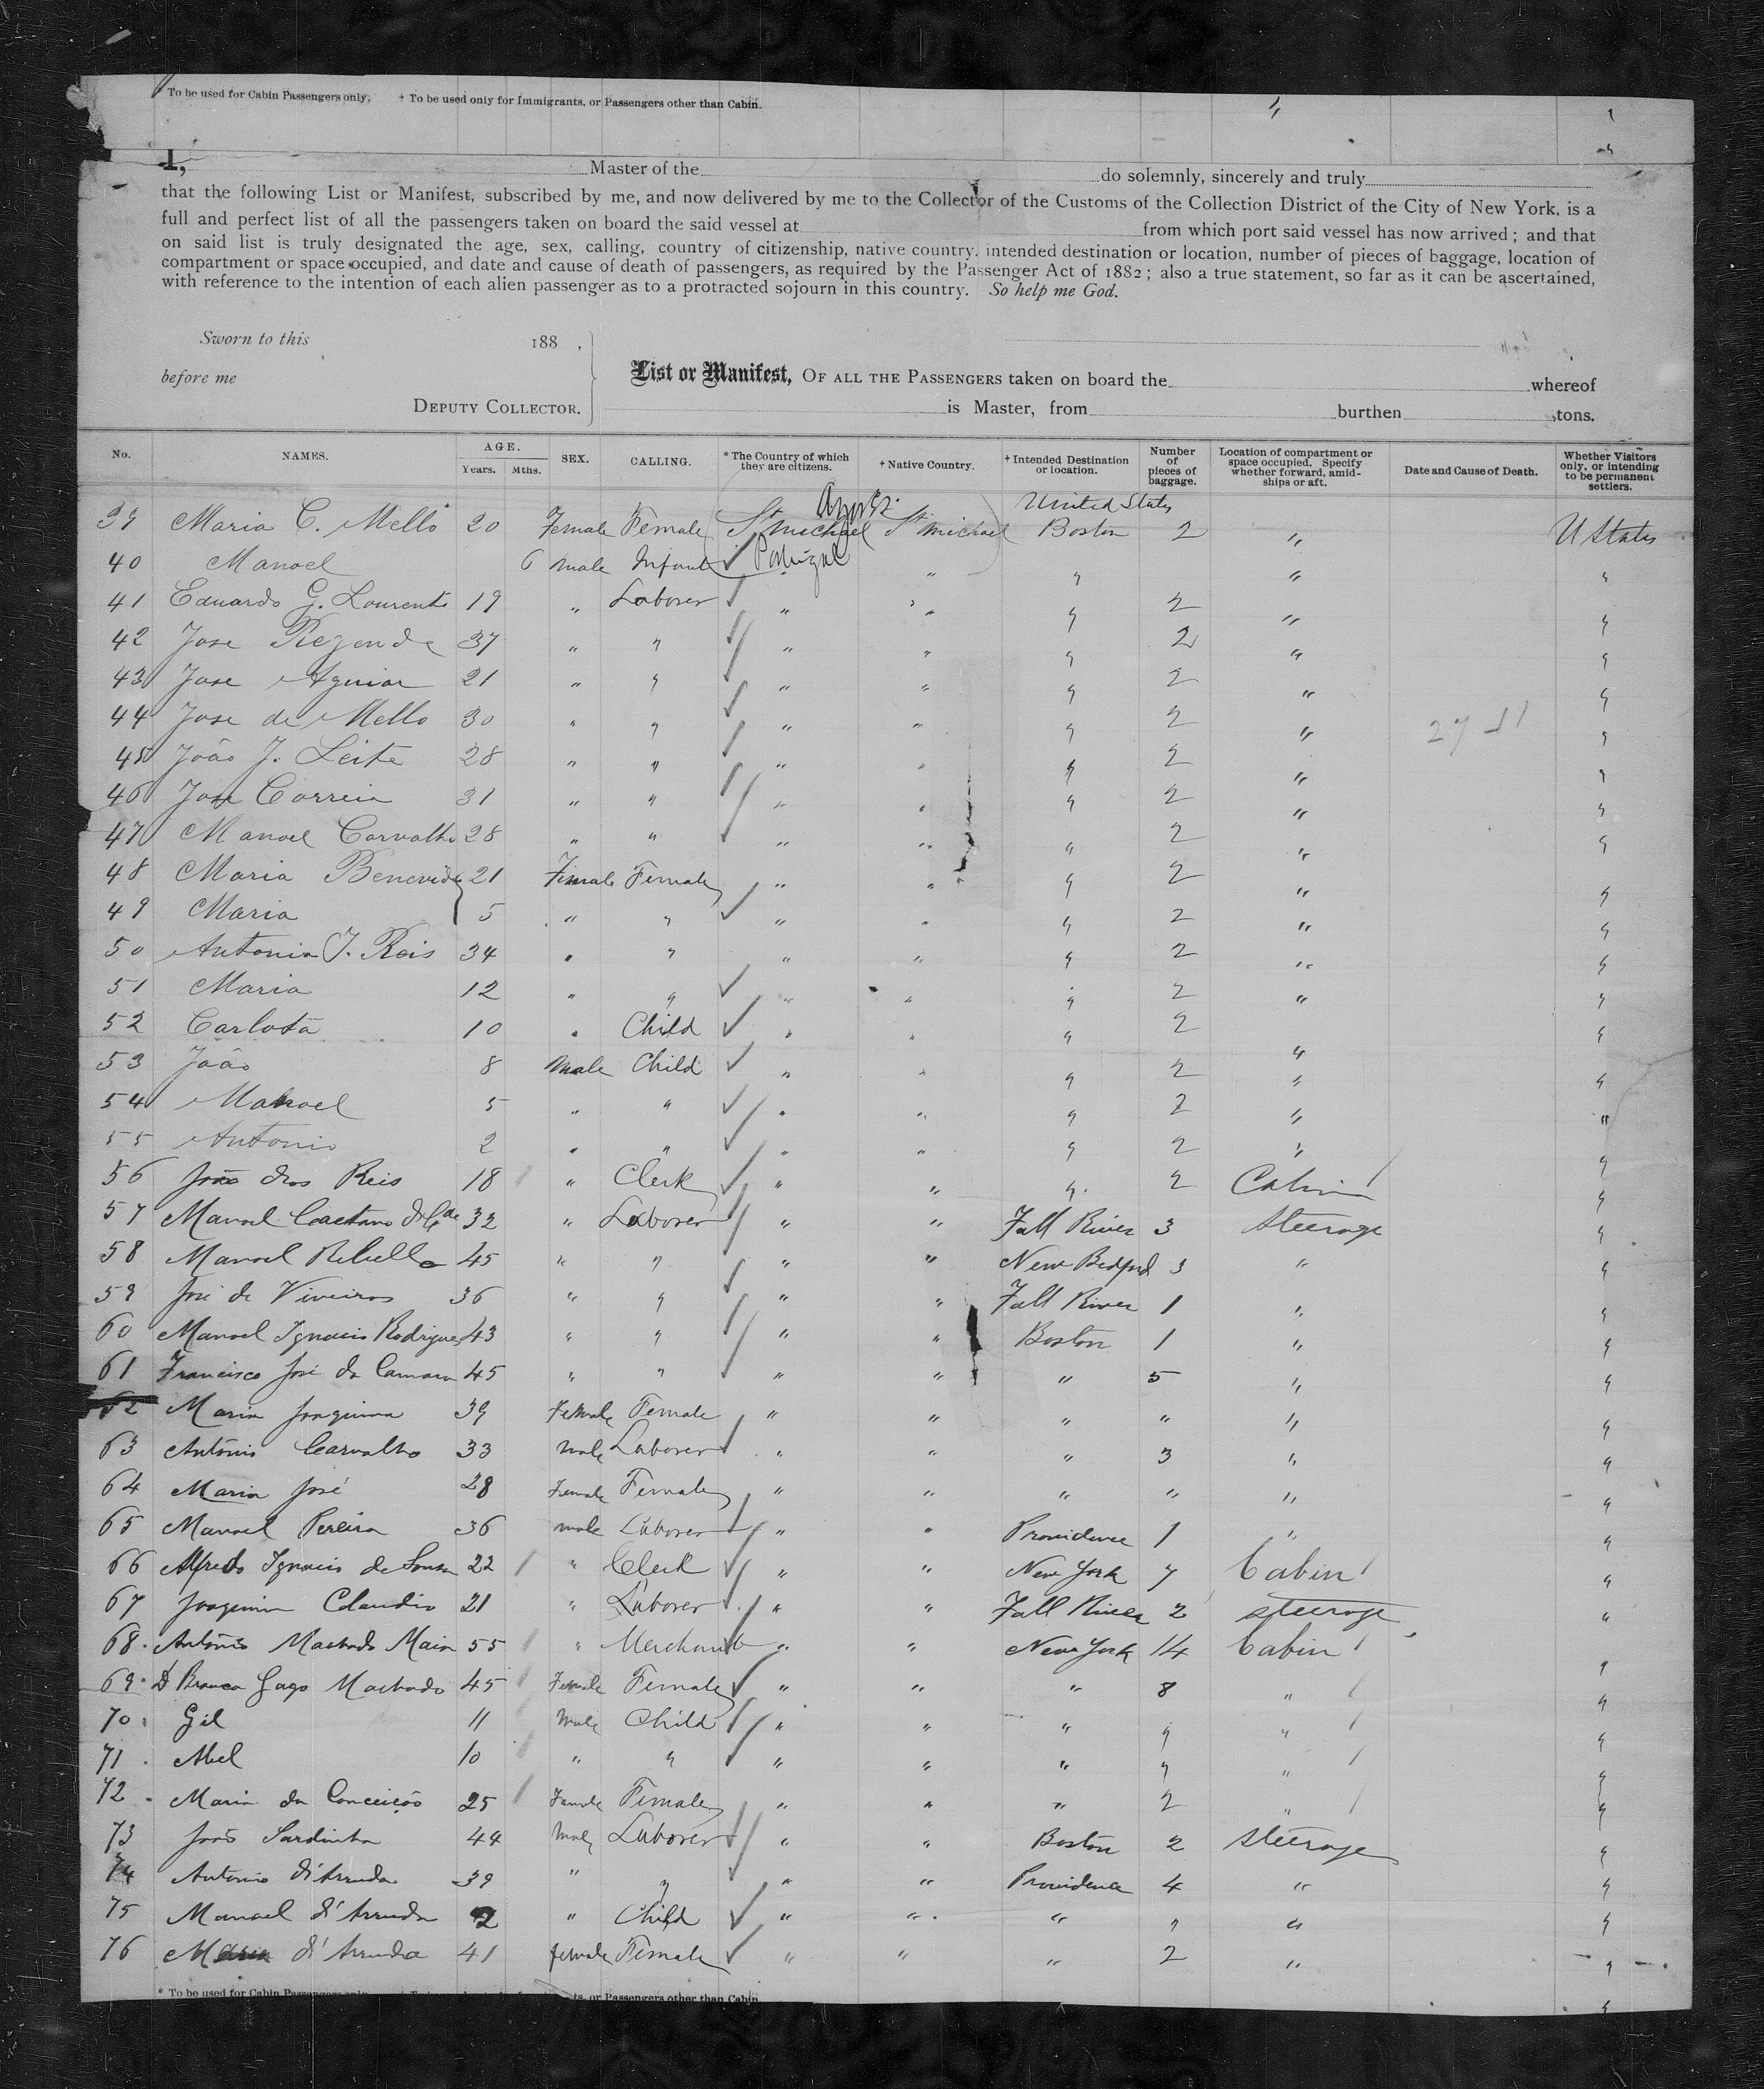 * To be used for Cabin Passengers only. † To be used only for Immigrants, or Passengers other than Cabin.
I, Master of the do solemnly, sincerely and truly
that the following List or Manifest, subscribed by me, and now delivered by me to the Collector of the Customs of the Collection District of the City of New York, is a
full and perfect list of all the passengers taken on board the said vessel at from which port said vessel has now arrived; and that
on said list is truly designated the age, sex, calling, country of citizenship, native country, intended destination or location, number of pieces of baggage, location of
compartment or space occupied, and date and cause of death of passengers, as required by the Passenger Act of 1882; also a true statement, so far as it can be ascertained,
with reference to the intention of each alien passenger as to a protracted sojourn in this country. So help me God.
Sworn to this 188 ,
before me
DEPUTY COLLECTOR.
List or Manifest, OF ALL THE PASSENGERS taken on board the whereof
is Master, from burthen tons.
No. NAMES. AGE. Years. Mths. SEX. CALLING. * The Country of which they are citizens. † Native Country. † Intended Destination or location. Number of pieces of baggage. Location of compartment or space occupied. Specify whether forward, amidships or aft. Date and Cause of Death. Whether Visitors only, or intending to be permanent settlers.
United States
39 Maria C. Mello 20 Female Female St michael St michael Boston 2 " U States
40 Manoel 6 male Infant Portugal " " " "
41 Eduardo G. Lourento 19 " Laborer " " " 2 " "
42 Jose Rezende 37 " " " " " 2 " "
43 Jose Aguiar 21 " " " " " 2 " "
44 Jose de Mello 30 " " " " " 2 " "
45 João J. Leite 28 " " " " " 2 " "
46 Jose Correia 31 " " " " " 2 " "
47 Manoel Carvalho 28 " " " " " 2 " "
48 Maria Benevides 21 Female Female " " " 2 " "
49 Maria 5 " " " " " 2 " "
50 Antonia J. Reis 34 " " " " " 2 " "
51 Maria 12 " " " " " 2 " "
52 Carlota 10 " Child " " " 2 " "
53 João 8 Male Child " " " 2 " "
54 Manoel 5 " " " " " 2 " "
55 Antonio 2 " " " " " 2 " "
56 João dos Reis 18 " Clerk " " " 2 Cabin "
57 Manoel Caetano 32 " Laborer " " Fall River 3 Steerage "
58 Manoel Rebello 45 " " " " New Bedford 3 " "
59 José de Viveiros 36 " " " " Fall River 1 " "
60 Manoel Ignacio Rodrigues 43 " " " " Boston 1 " "
61 Francisco José da Camara 45 " " " " " 5 " "
62 Maria Joaquina 39 Female Female " " " " " "
63 António Carvalho 33 Male Laborer " " " 3 " "
64 Maria José 28 Female Female " " " " " "
65 Manoel Pereira 36 male Laborer " " Providence 1 " "
66 Alfredo Ignacio de Sousa 22 " Clerk " " New York 7 Cabin "
67 Joaquim Claudio 21 " Laborer " " Fall River 2 steerage "
68 António Machado Maia 55 " Merchant " " New York 14 Cabin "
69 D Branca Gago Machado 45 Female Female " " " 8 " "
70 Gil 11 Male Child " " " " " "
71 Abel 10 " " " " " " " "
72 Maria da Conceição 25 Female Female " " " 2 " "
73 João Sardinha 44 Male Laborer " " Boston 2 Steerage "
74 Antonio d'Arruda 39 " " " " Providence 4 " "
75 Manoel d'Arruda 2 " Child " " " " " "
76 Maria d'Arruda 41 female Female " " " 2 " "
* To be used for Cabin Passengers only ts, or Passengers other than Cabin